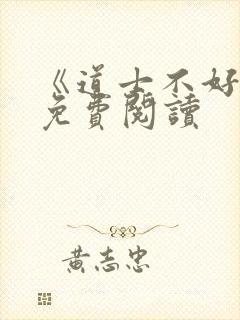 《道士不好
免費閱讀
黃志忠